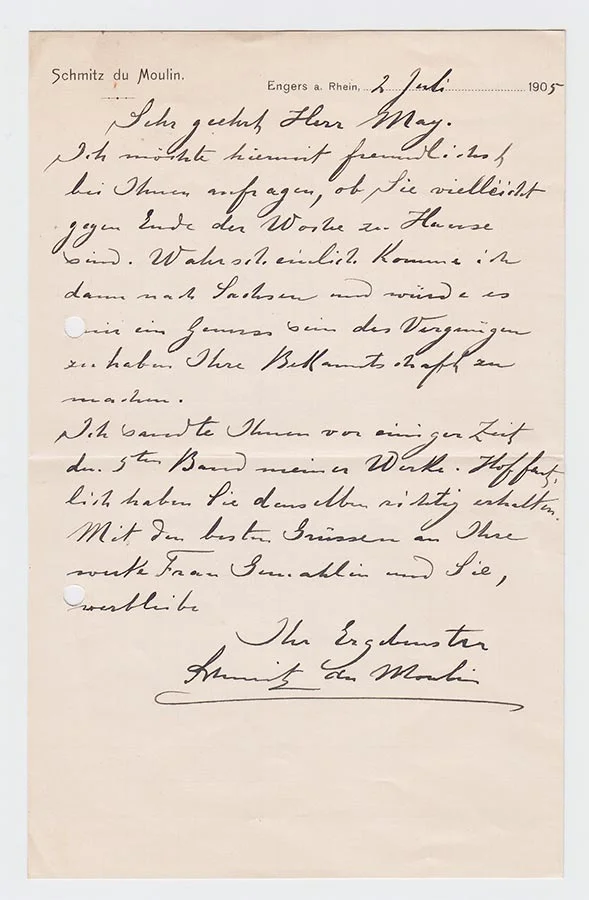 Schmitz du Moulin.
Engers a. Rhein, 2 Juli 1905
Sehr geehrt Herr May.
Ich möchte hiermit freundlichst
bei Ihnen anfragen, ob Sie vielleicht
gegen Ende der Woche zu Hause
sind. Wahrscheinlich komme ich
dann nach Sachsen und würde es
mir ein Genuss sein das Vergnügen
zu haben Ihre Bekanntschaft zu
machen.
Ich sandte Ihnen vor einiger Zeit
den 5ten Band meiner Werke. Hoffent,
lich haben Sie denselben richtig erhalten.
Mit den besten Grüssen an Ihre
werte Frau Gemahlin und Sie,
verbleibe
Ihr Ergebenster
Schmitz du Moulin